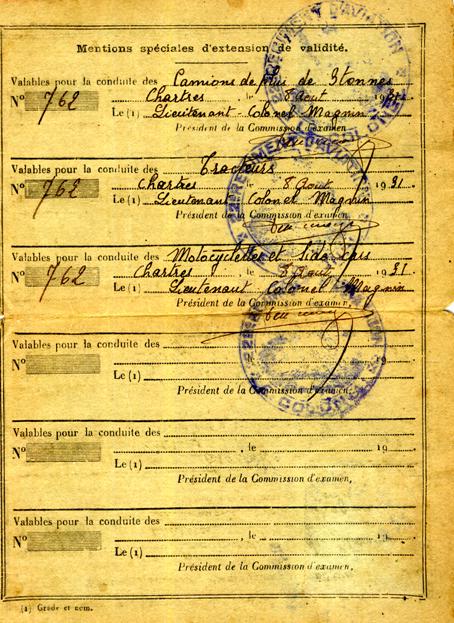 Mentions spéciales d'extension de validité.
Valables pour la conduite des Camions de plus de 3 tonnes
Nº 762 Chartres, le 8 Août 1931
Le (1) Lieutenant-Colonel Magnin
Président de la Commission d'examen
Valables pour la conduite des Tracteurs
Nº 762 Chartres, le 8 Août 1931
Le (1) Lieutenant Colonel Magnin
Président de la Commission d'examen,
Valables pour la conduite des Motocyclettes et Side cars
Nº 762 Chartres, le 8 Août 1931
Le (1) Lieutenant Colonel Magnin
Président de la Commission d'examen,
Valables pour la conduite des
Nº , le 19
Le (1)
Président de la Commission d'examen,
Valables pour la conduite des
Nº , le 19
Le (1)
Président de la Commission d'examen,
Valables pour la conduite des
Nº , le 19
Le (1)
Président de la Commission d'examen,
(1) Grade et nom.
RÉGIMENT D'AVIATION
COLONEL
22e RÉGIMENT D'AVIATION
22e
COLONEL